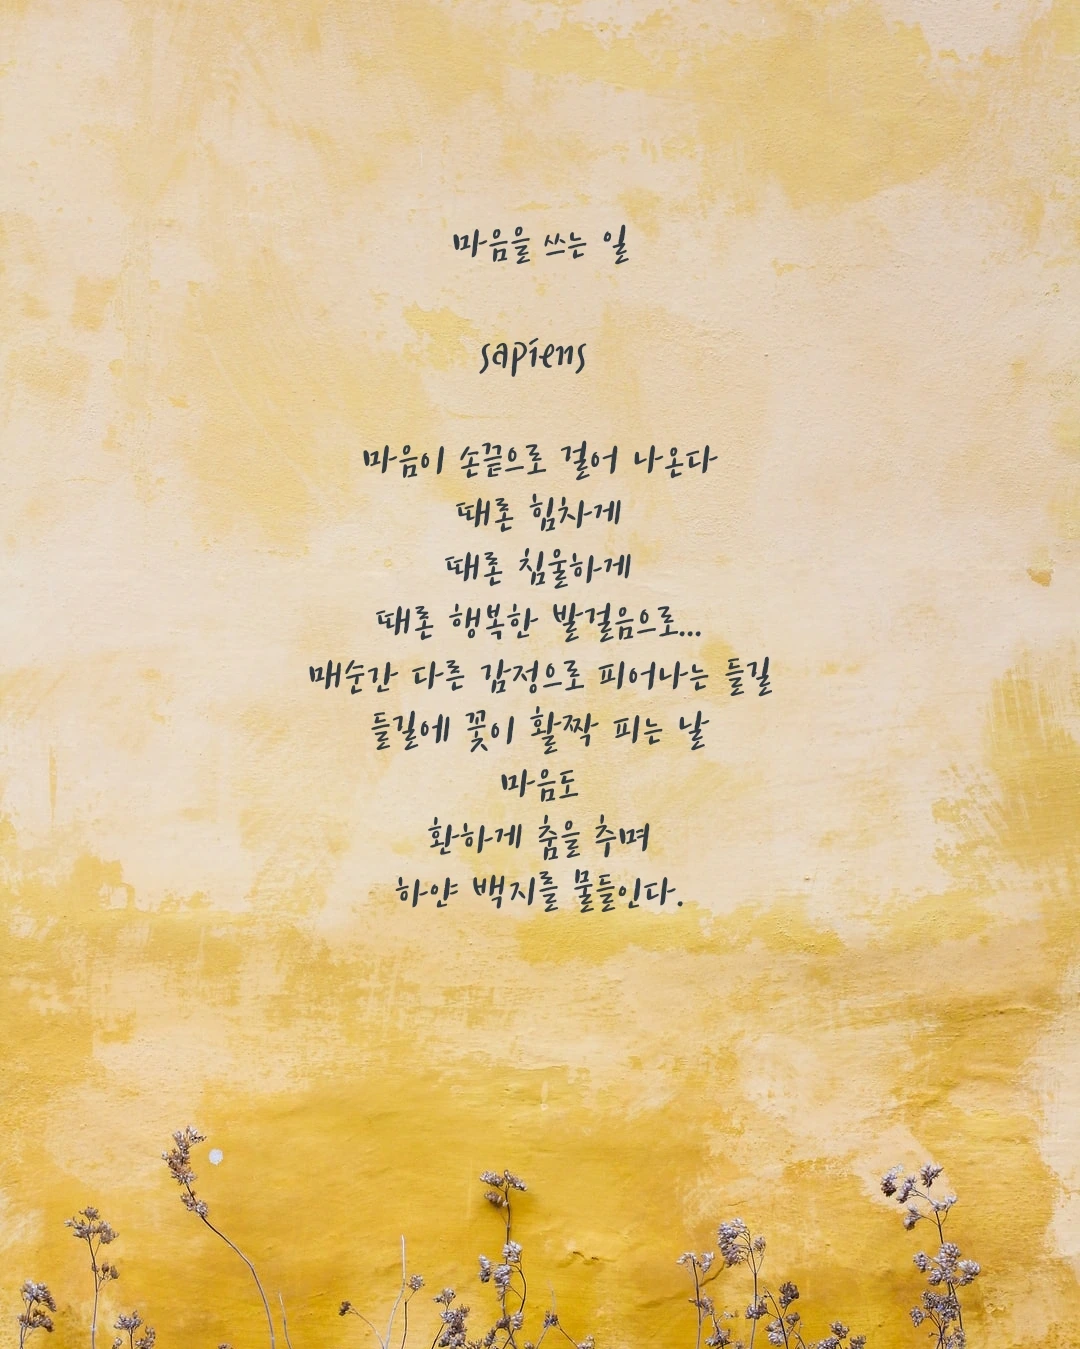 마음을 쓰는 일
sapiens
마음이 손끝으로 걸어 나온다
때론 힘차게
때론 침울하게
때론 행복한 발걸음으로...
매순간 다른 감정으로 피어나는 들길
들길에 꽃이 활짝 피는 날
마음도
환하게 춤을 추며
하얀 백지를 물들인다.